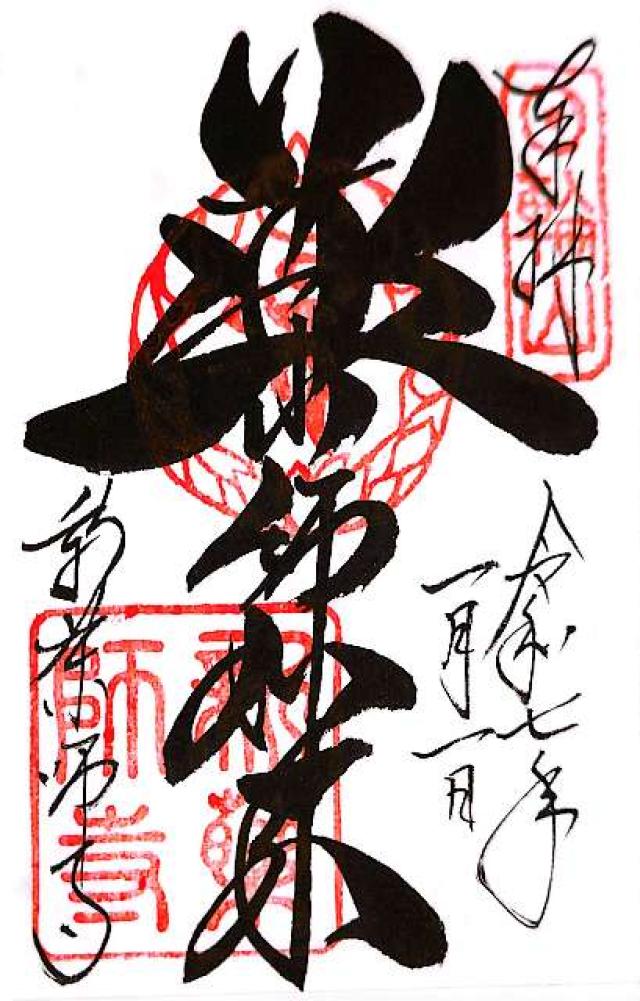 奉拝
令和七年
一月一日
薬師如来
新薬師寺
新薬師寺